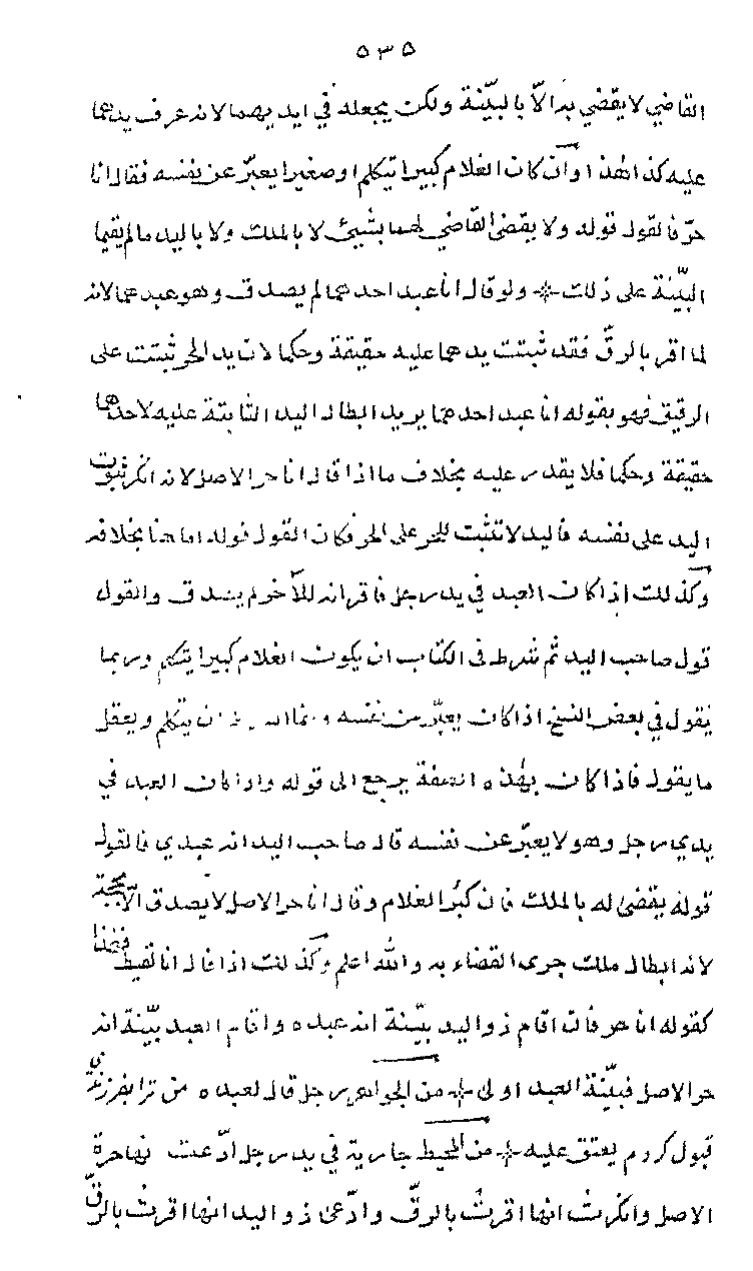 ٥٣٥
القاضي لا يقضي به الّا بالبيّنة ولكن يجعله في ايديهما لانه عرف يدهما
عليه كذا هٰذا وان كان الغلام كبيرا يتكلم او صغيرا يعبّر عن نفسه فقال انا
حرّ فالقول قوله ولا يقضى القاضي لهما بشيئ لا بالملك ولا باليد مالم يقيما
البيّنة على ذلك ❊ ولو قال انا عبد احدهما لم يصدق وهو عبدهما لانه
لما اقر بالرقّ فقد ثبتت يدهما عليه حقيقة وحكما لان يد الحر ثبتت على
الرقيق فهو بقوله انا عبد احدهما يريد ابطال اليد الثابتة عليه لاحدهما
حقيقة وحكما فلا يقدر عليه بخلاف ما اذا قال انا حر الاصل لانه انكر ثبوت
اليد على نفسه فاليد لا تثبت للحر على الحر فكان القول قوله اما هنا بخلافه
وكذلك اذا كان العبد في يد رجل فاقر انه للآخر لم يصدق والقول
قول صاحب اليد ثم شرط فى الكتاب ان يكون الغلام كبيرا يتكلم وربما
يقول في بعض النسخ اذا كان يعبّر من نفسه ان يتكلم ويعقل
ما يقول فاذا كان بهٰذه الصفة يرجع الى قوله واذا كان العبد في
يدي رجل وهو لا يعبّر عن نفسه قال صاحب اليد انه عبدي فالقول
قوله يقضى له بالملك فان كبر الغلام وقال انا حر الاصل لا يصدق الّا بحجة
لانه ابطال ملك جرى القضاء به والله اعلم وكذلك اذا قال انا لقيط فهذا
كقوله انا حر فان اقام ذو اليد بيّنة انه عبده واقام العبد بيّنة انه
حر الاصل فبيّنة العبد اولى ❊ من الجوامع رجل قال لعبده من ترا بفرزندي
قبول كردم يعتق عليه ❊ من المحيط جارية في يد رجل ادّعت انها حرة
الاصل وانكرت انها اقرت بالرقّ وادّعى ذو اليد انها اقرت بالرقّ